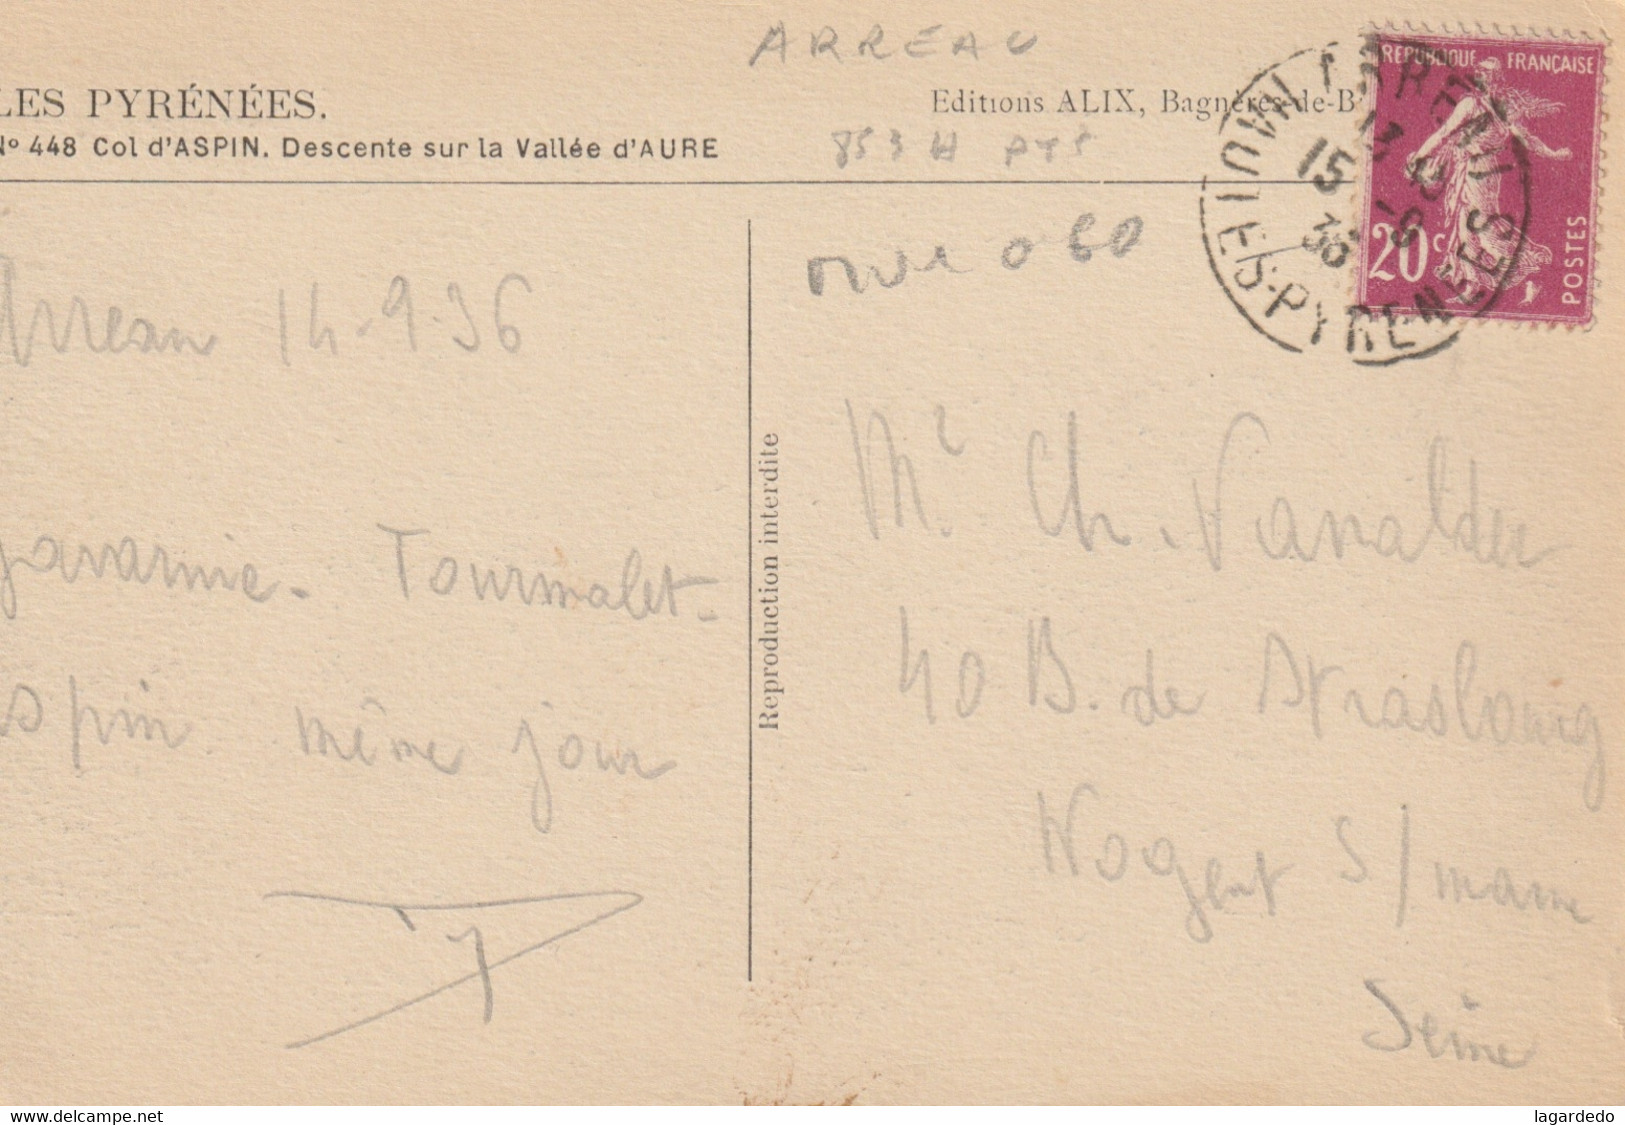 ARREAU
LES PYRÉNÉES.
Editions ALIX, Bagnères-de-B
Nº 448 Col d'ASPIN. Descente sur la Vallée d'AURE
853 H PTS
REPUBLIQUE FRANÇAISE
20c
POSTES
ARREAU
13 40
15 -9
36
HAUTES-PYRENEES
Arreau 14-9-36
Gavarnie - Tourmalet -
Aspin même jour
Reproduction interdite
Mr. Ch. Vanalder
40 B. de Strasbourg
Nogent s/marne
Seine
www.delcampe.net
lagardedo